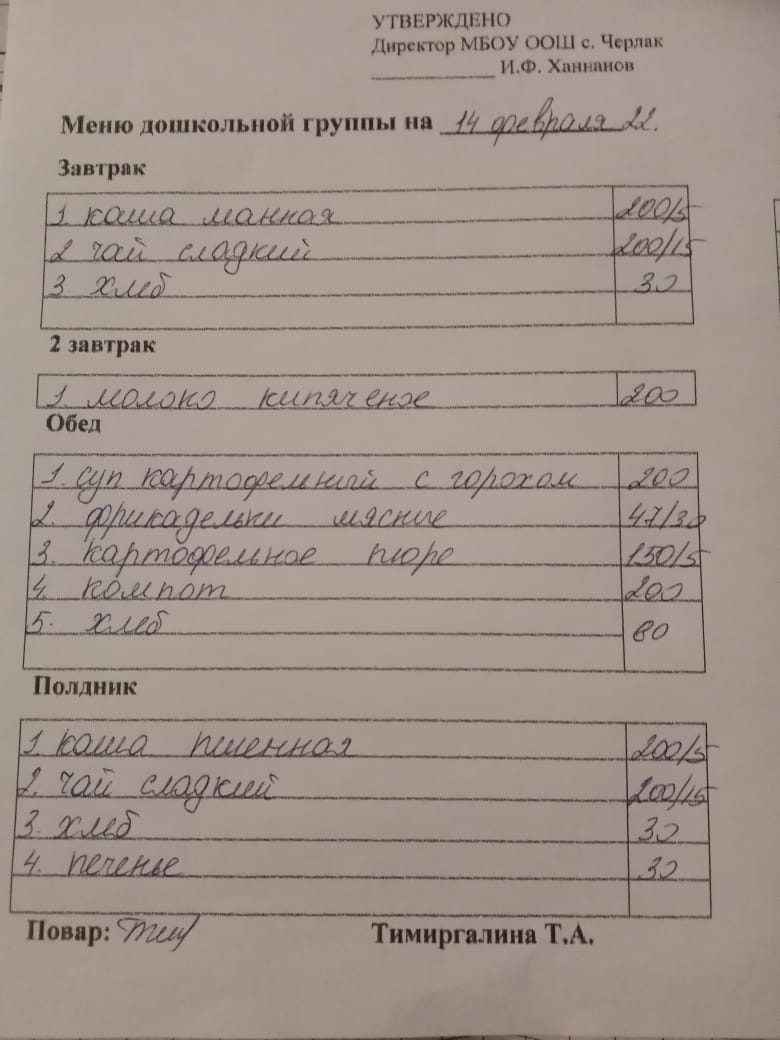 УТВЕРЖДЕНО
Директор МБОУ ООШ с. Черлак
____________ И.Ф. Ханнанов
Меню дошкольной группы на 14 февраля 22.
Завтрак
1. каша манная 200/5
2 чай сладкий 200/15
3. хлеб 30
2 завтрак
1. молоко кипяченое 200
Обед
1. суп картофельный с горохом 200
2. фрикадельки мясные 47/30
3. картофельное пюре 150/5
4. компот 200
5. хлеб 80
Полдник
1. каша пшенная 200/5
2. чай сладкий 200/15
3. хлеб 30
4. печенье 30
Повар: Тимиргалина Т.А.